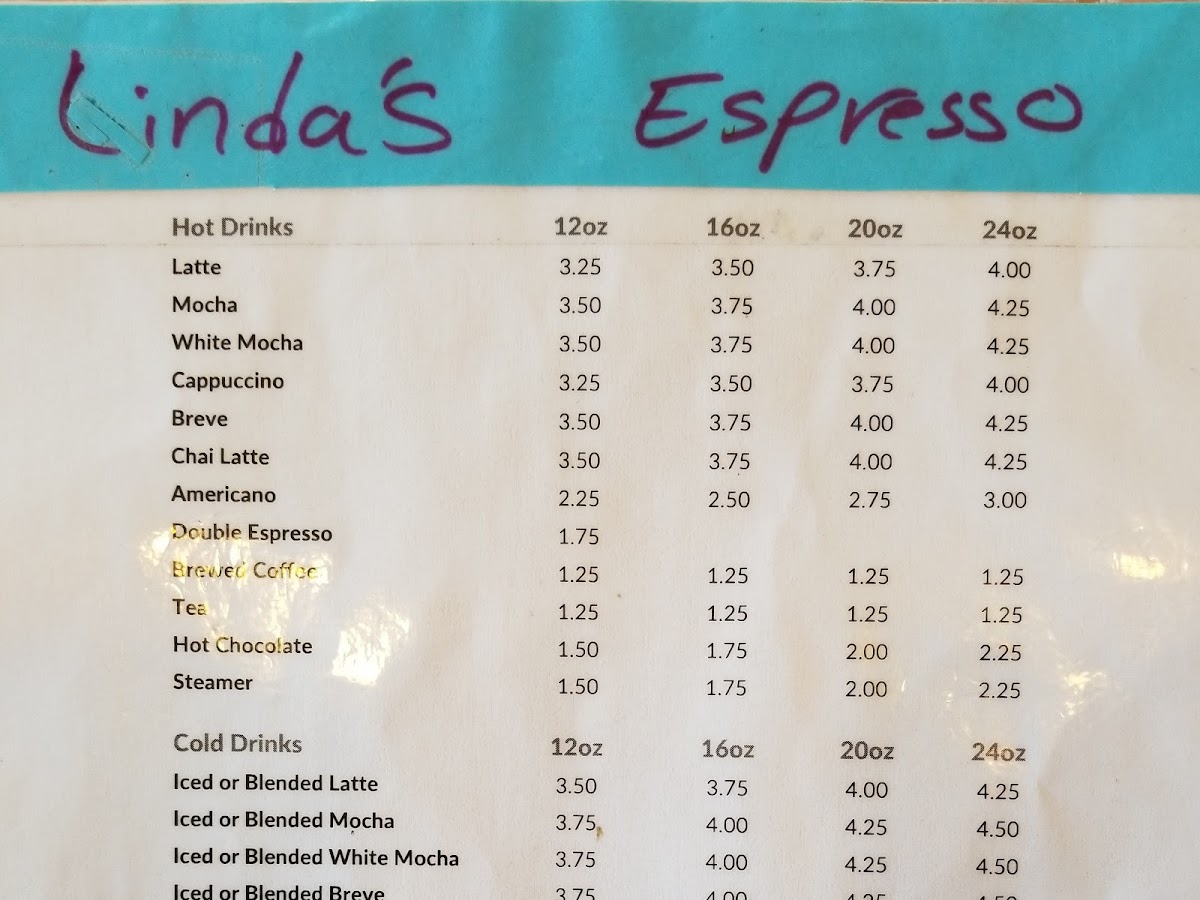 Linda's Espresso
Hot Drinks 12oz 16oz 20oz 24oz
Latte 3.25 3.50 3.75 4.00
Mocha 3.50 3.75 4.00 4.25
White Mocha 3.50 3.75 4.00 4.25
Cappuccino 3.25 3.50 3.75 4.00
Breve 3.50 3.75 4.00 4.25
Chai Latte 3.50 3.75 4.00 4.25
Americano 2.25 2.50 2.75 3.00
Double Espresso 1.75
Brewed Coffee 1.25 1.25 1.25 1.25
Tea 1.25 1.25 1.25 1.25
Hot Chocolate 1.50 1.75 2.00 2.25
Steamer 1.50 1.75 2.00 2.25
Cold Drinks 12oz 16oz 20oz 24oz
Iced or Blended Latte 3.50 3.75 4.00 4.25
Iced or Blended Mocha 3.75 4.00 4.25 4.50
Iced or Blended White Mocha 3.75 4.00 4.25 4.50
Iced or Blended Breve 3.75 4.00 4.25 4.50